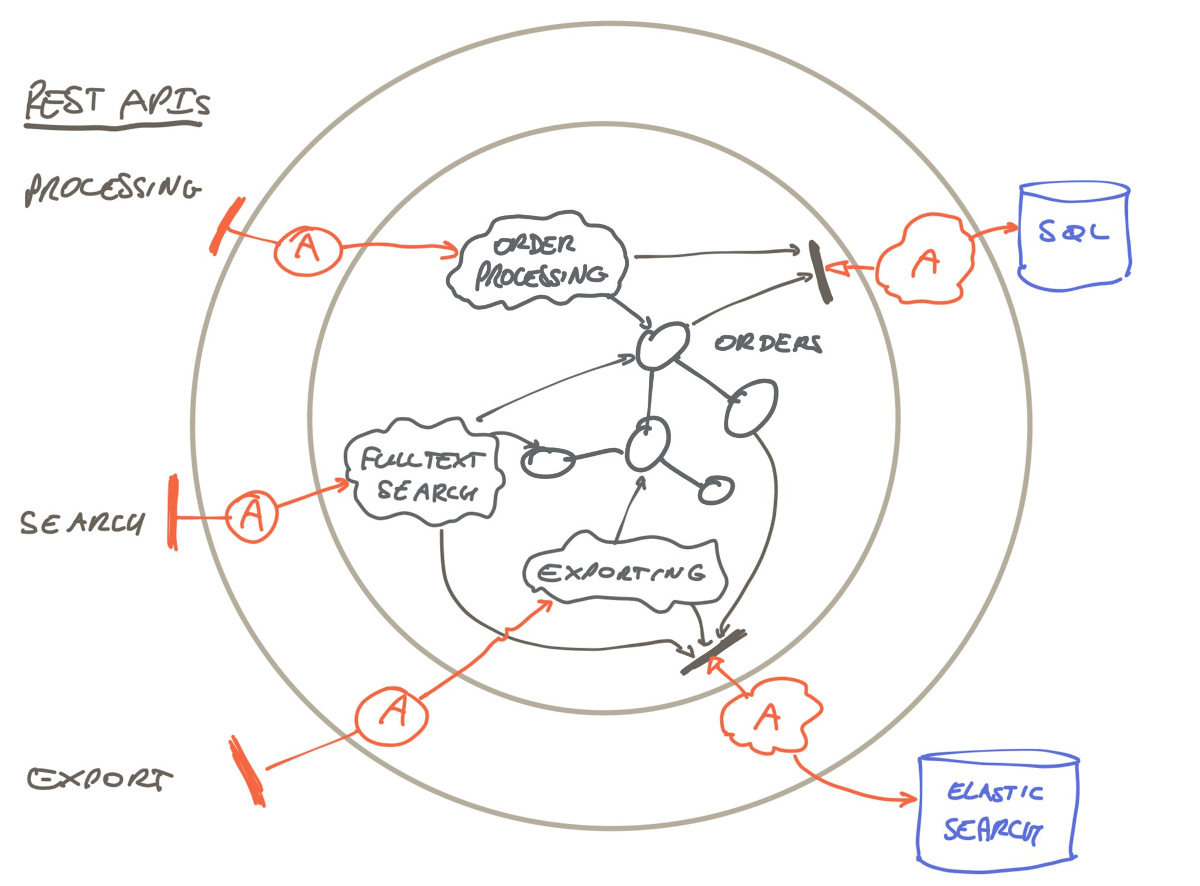 REST APIs
PROCESSING
A
ORDER
PROCESSING
A
SQL
ORDERS
FULLTEXT
SEARCH
SEARCH
A
EXPORTING
A
A
EXPORT
ELASTIC
SEARCH